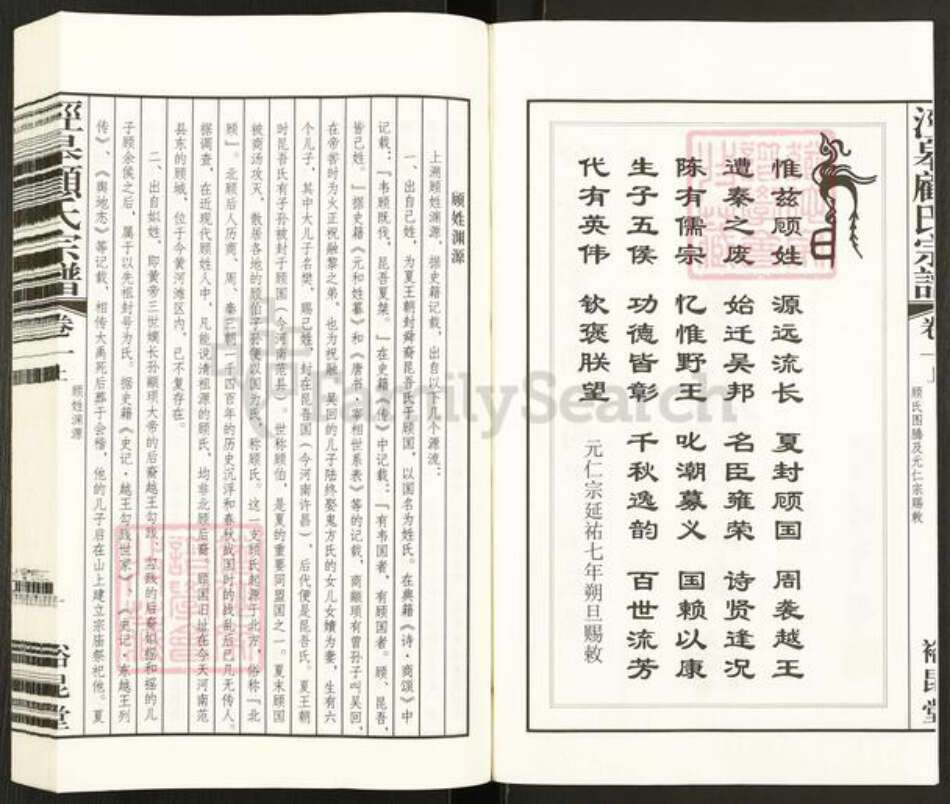 顾氏宗谱
卷一上
顾氏图腾及元仁宗赐敕
裕昆堂
惟兹顾姓 源远流长 夏封顾国 周袭越王
遭秦之废 始迁吴邦 名臣雍荣 诗贤逢况
陈有儒宗 忆惟野王 叱潮募义 国赖以康
生子五侯 功德皆彰 千秋逸韵 百世流芳
代有英伟 钦褒朕望
元仁宗延祐七年朔旦赐敕
顾姓渊源
上溯顾姓渊源，据史籍记载，出自以下几个源流：
一、出自己姓，为夏王朝封舜裔昆吾氏于顾国，以国名为姓氏。在典籍《诗·商颂》中
记载：『韦顾既伐，昆吾夏桀。』在史籍《传》中记载：『有韦国者，有顾国者。顾、昆吾，
皆己姓。』据史籍《元和姓纂》和《唐书·宰相世系表》等的记载，颛顼有曾孙子叫吴回，
在帝喾时为火正祝融黎之弟，也为祝融。吴回的儿子陆终娶鬼方氏的女儿女嬇为妻，生有六
个儿子，其中大儿子名樊，赐己姓，封在昆吾国（今河南许昌），后代便是昆吾氏。夏王朝
时昆吾氏有子孙被封于顾国（今河南范县）。世称顾伯，是夏的重要同盟国之一。夏末顾国
被商汤攻灭，散居各地的顾伯子孙便以国为氏，称顾氏。这一支顾氏起源于北方，俗称『北
顾』。北顾后人历商、周、秦三朝一千四百年的历史沉浮和春秋战国时的战乱后已几无传人。
据调查，在近现代顾姓人中，凡能说清祖源的顾氏，均非北顾后裔。顾国旧址在今天河南范
县东的顾城，位于今黄河滩区内，已不复存在。
二、出自姒姓，即黄帝三世嫡长孙颛顼大帝的后裔越王勾践，勾践的后裔姒摇和摇的儿
子顾余侯之后，属于以先祖封号为氏。据史籍《史记·越王勾践世家》、《史记·东越王列
传》、《舆地志》等记载，相传大禹死后葬于会稽，他的儿子启在山上建立宗庙祭祀他。夏
顾氏宗谱
卷一上
顾姓渊源
裕昆堂
FamilySearch